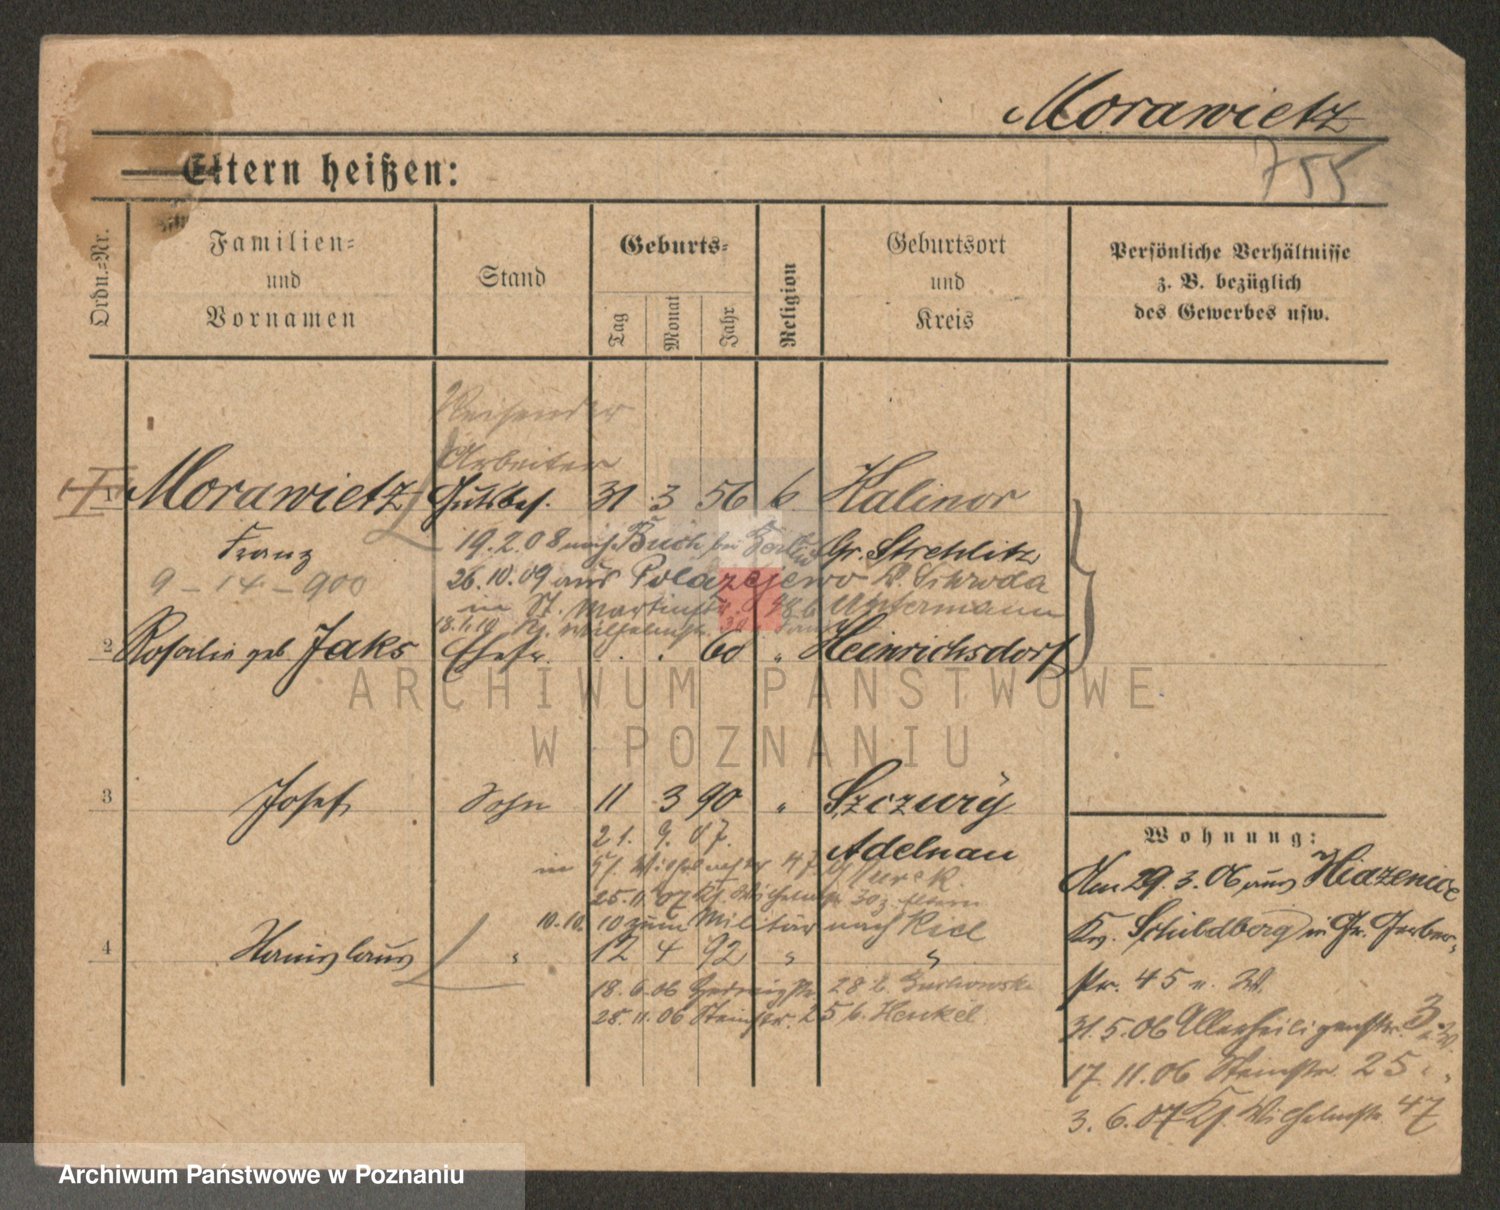 Morawietz
755
Eltern heißen:
Ordn.-Nr.
Familien-
und
Vornamen
Stand
Geburts-
Tag
Monat
Jahr
Religion
Geburtsort
und
Kreis
Persönliche Verhältnisse
z. B. bezüglich
des Gewerbes usw.
Reisender
Arbeiter
1 Morawietz Gutsbes. 31 3 56 k. Kalinow
Franz 19.2.08 nach Buch bei Gr. Strehlitz
9-14-900 26.10.09 aus Polazejewo Kr. Schroda
in St. Martinstr. Untermann
2 Rosalie geb. Jaks Ehefr. . . 60 " Heinrichsdorf
ARCHIWUM PAŃSTWOWE
W POZNANIU
3 Josef Sohn 11 3 90 " Szczury
21. 9. 07. Adelnau
in Gr. 47 Murek
25.11.07 30 Eltern
10.10.10 zum Militär nach Kiel
4 Stanislaus " 12 4 92 " "
18.6.06 28
28.11.06 Steinstr. 25 b. Henkel
Wohnung:
Am 29.3.06 aus
Kr. Schildberg in Gr. Gerber-
str. 45 u. W.
31.5.06 Allerheiligenstr. 3
17.11.06 Steinstr. 25
3.6.07 Kl. Wilhelmstr. 47
Archiwum Państwowe w Poznaniu